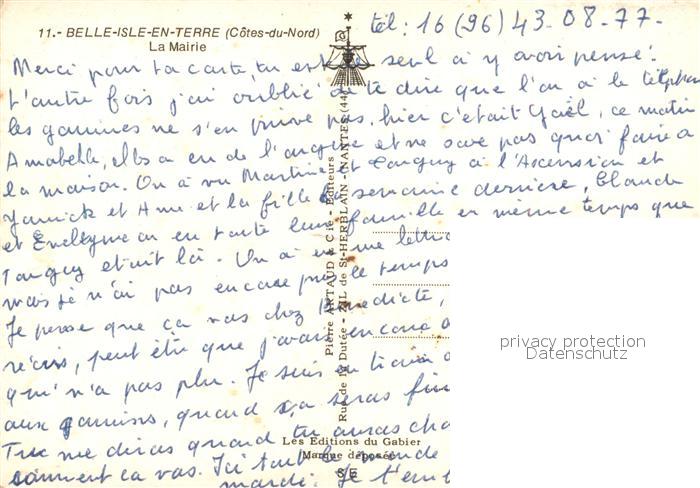 11.- BELLE-ISLE-EN-TERRE (Côtes-du-Nord)
La Mairie
tél: 16 (96) 43-08-77-
Merci pour ta carte, tu est le seul à y avoir pensé.
L'autre fois j'ai oublié de te dire que l'on a le téléphone
les gamines ne s'en prive pas, hier c'était Gaël, ce matin
Amabelle, elle a eu de l'angine et ne save pas quoi faire à
la maison. On à vu Martine et Tanguy à l'Ascension et
Yannick et Anne et la fille la semaine dernière, Claude
et Evelyne a eu toute leur famille en même temps que
Tanguy était là. On à eu une lettre
mais je n'ai pas encore pris le temps
Je pense que ça vas chez Bénédicte,
peut être que j'aurais encore
qui n'a pas plu. Je suis en train
aux gamines, quand ça seras fini
Tu me diras quand tu auras
comment ca vas. Ici tout le monde
mardi. Je t'em
Pierre ARTAUD & Cie - Editeurs
Rue de la Dutée - Z.I.L de St-HERBLAIN - NANTES (44)
Les Editions du Gabier
Marque déposée
S E
privacy protection
Datenschutz